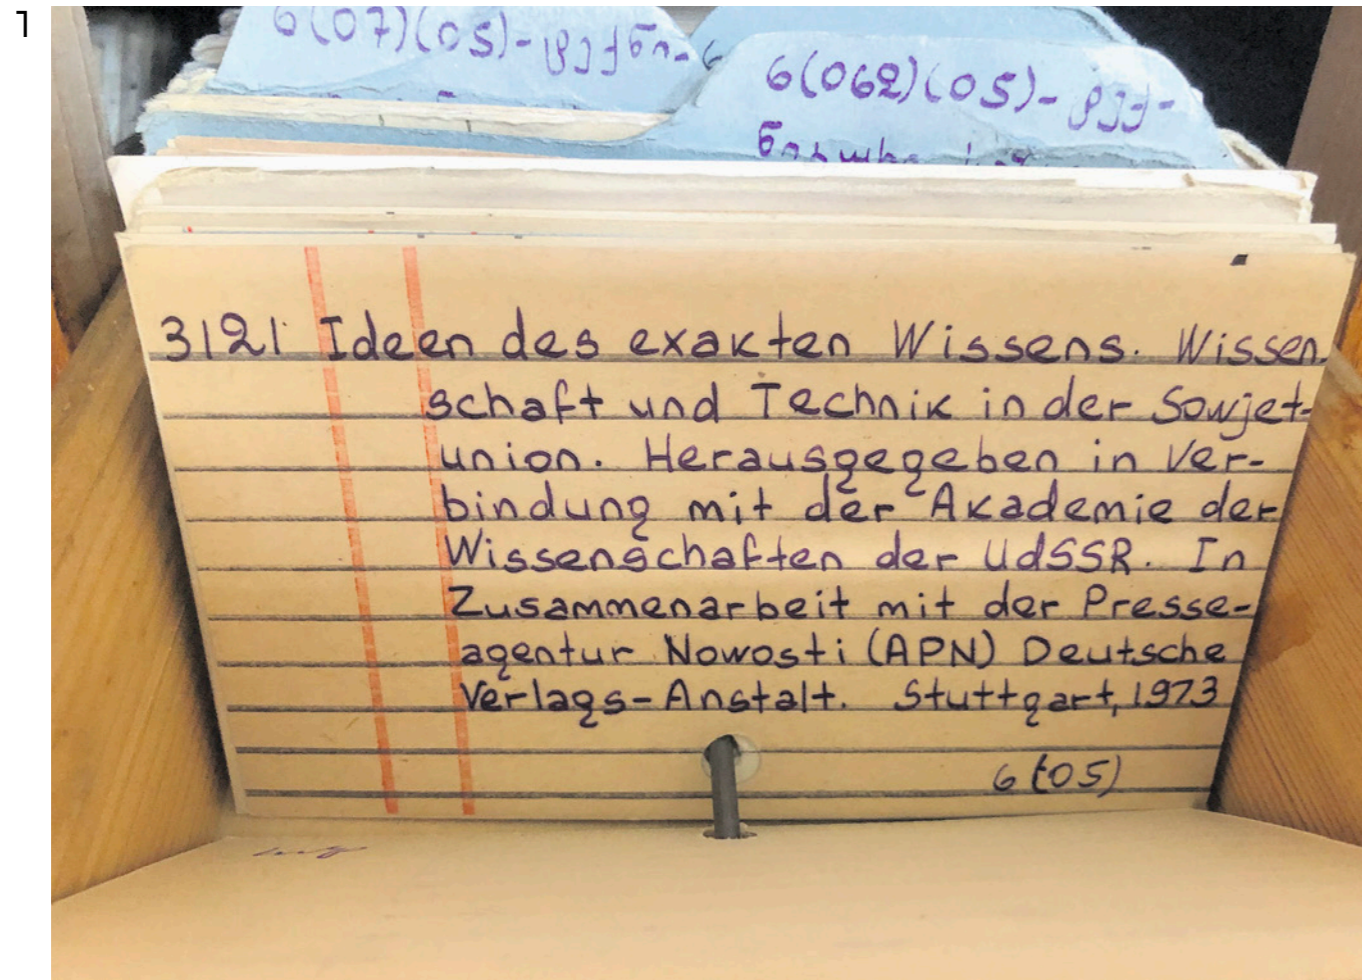 1
6(07)(05)-
6(062)(05)-
3121 Ideen des exakten Wissens. Wissen
schaft und Technik in der Sowjet-
union. Herausgegeben in Ver-
bindung mit der Akademie der
Wissenschaften der UdSSR. In
Zusammenarbeit mit der Presse-
agentur Nowosti (APN) Deutsche
Verlags-Anstalt. Stuttgart, 1973
6(05)